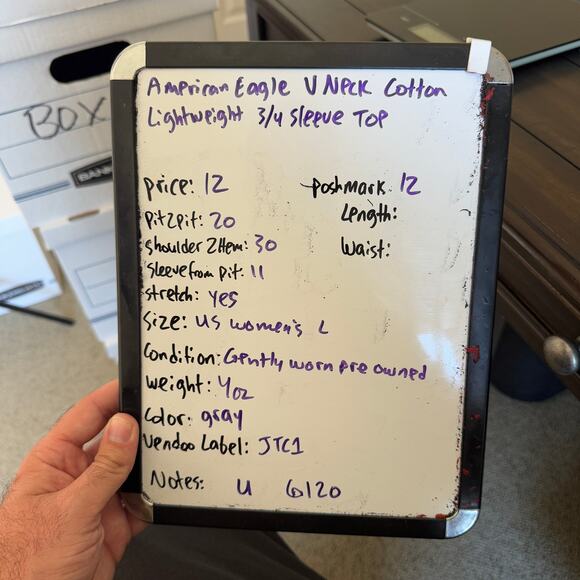 American Eagle V Neck Cotton
Lightweight 3/4 Sleeve Top
price: 12
poshmark 12
pit2pit: 20
Length:
shoulder 2 Hem: 30
Waist:
sleeve from pit: 11
stretch: yes
Size: US women's L
Condition: Gently worn pre owned
weight: 4oz
Color: gray
Vendoo Label: JTC1
Notes: U 6/20
BOX
BANK